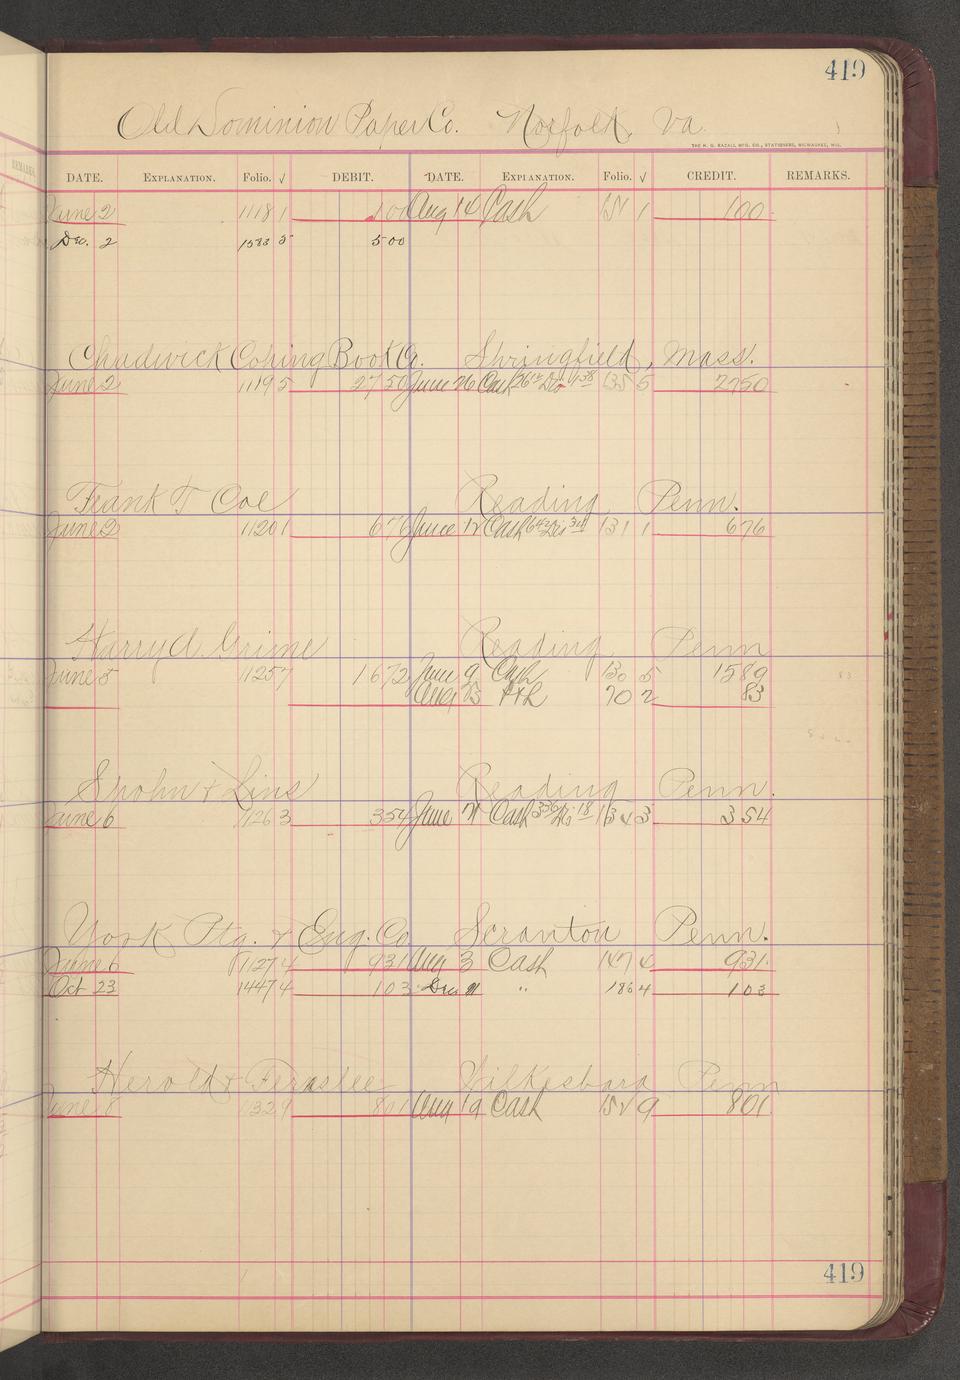 419
Old Dominion Paper Co. Norfolk, Va.
THE H. G. RAZALL MFG. CO., STATIONERS, MILWAUKEE, WIS.
DATE. EXPLANATION. Folio. √ DEBIT. DATE. EXPLANATION. Folio. √ CREDIT. REMARKS.
June 2 1118 1 100 Aug 14 Cash 151 1 100
Dec. 2 1583 5 500
Chadwick Coping Book Co. Springfield, Mass.
June 2 1119 5 2750 June 26 Cash Dis 138 135 5 2750
Frank T Coe Reading Penn.
June 2 1120 1 676 June 12 Cash 642 Dis 34 131 1 676
Harry A. Grime Reading Penn
June 5 1125 7 1672 June 9 Cash 130 5 1589
Aug 25 70 2 83
Spohn & Lins Reading Penn.
June 6 1126 3 354 June 21 Cash 336 Dis 18 134 3 354
York Ptg. & Eng. Co Scranton Penn.
June 6 1127 4 931 Aug 3 Cash 147 4 931
Oct 23 1447 4 103 Dec 21 " 186 4 103
Herold & Fernslee Wilkesbara Penn
June 8 1132 9 801 Aug 19 Cash 152 9 801
419